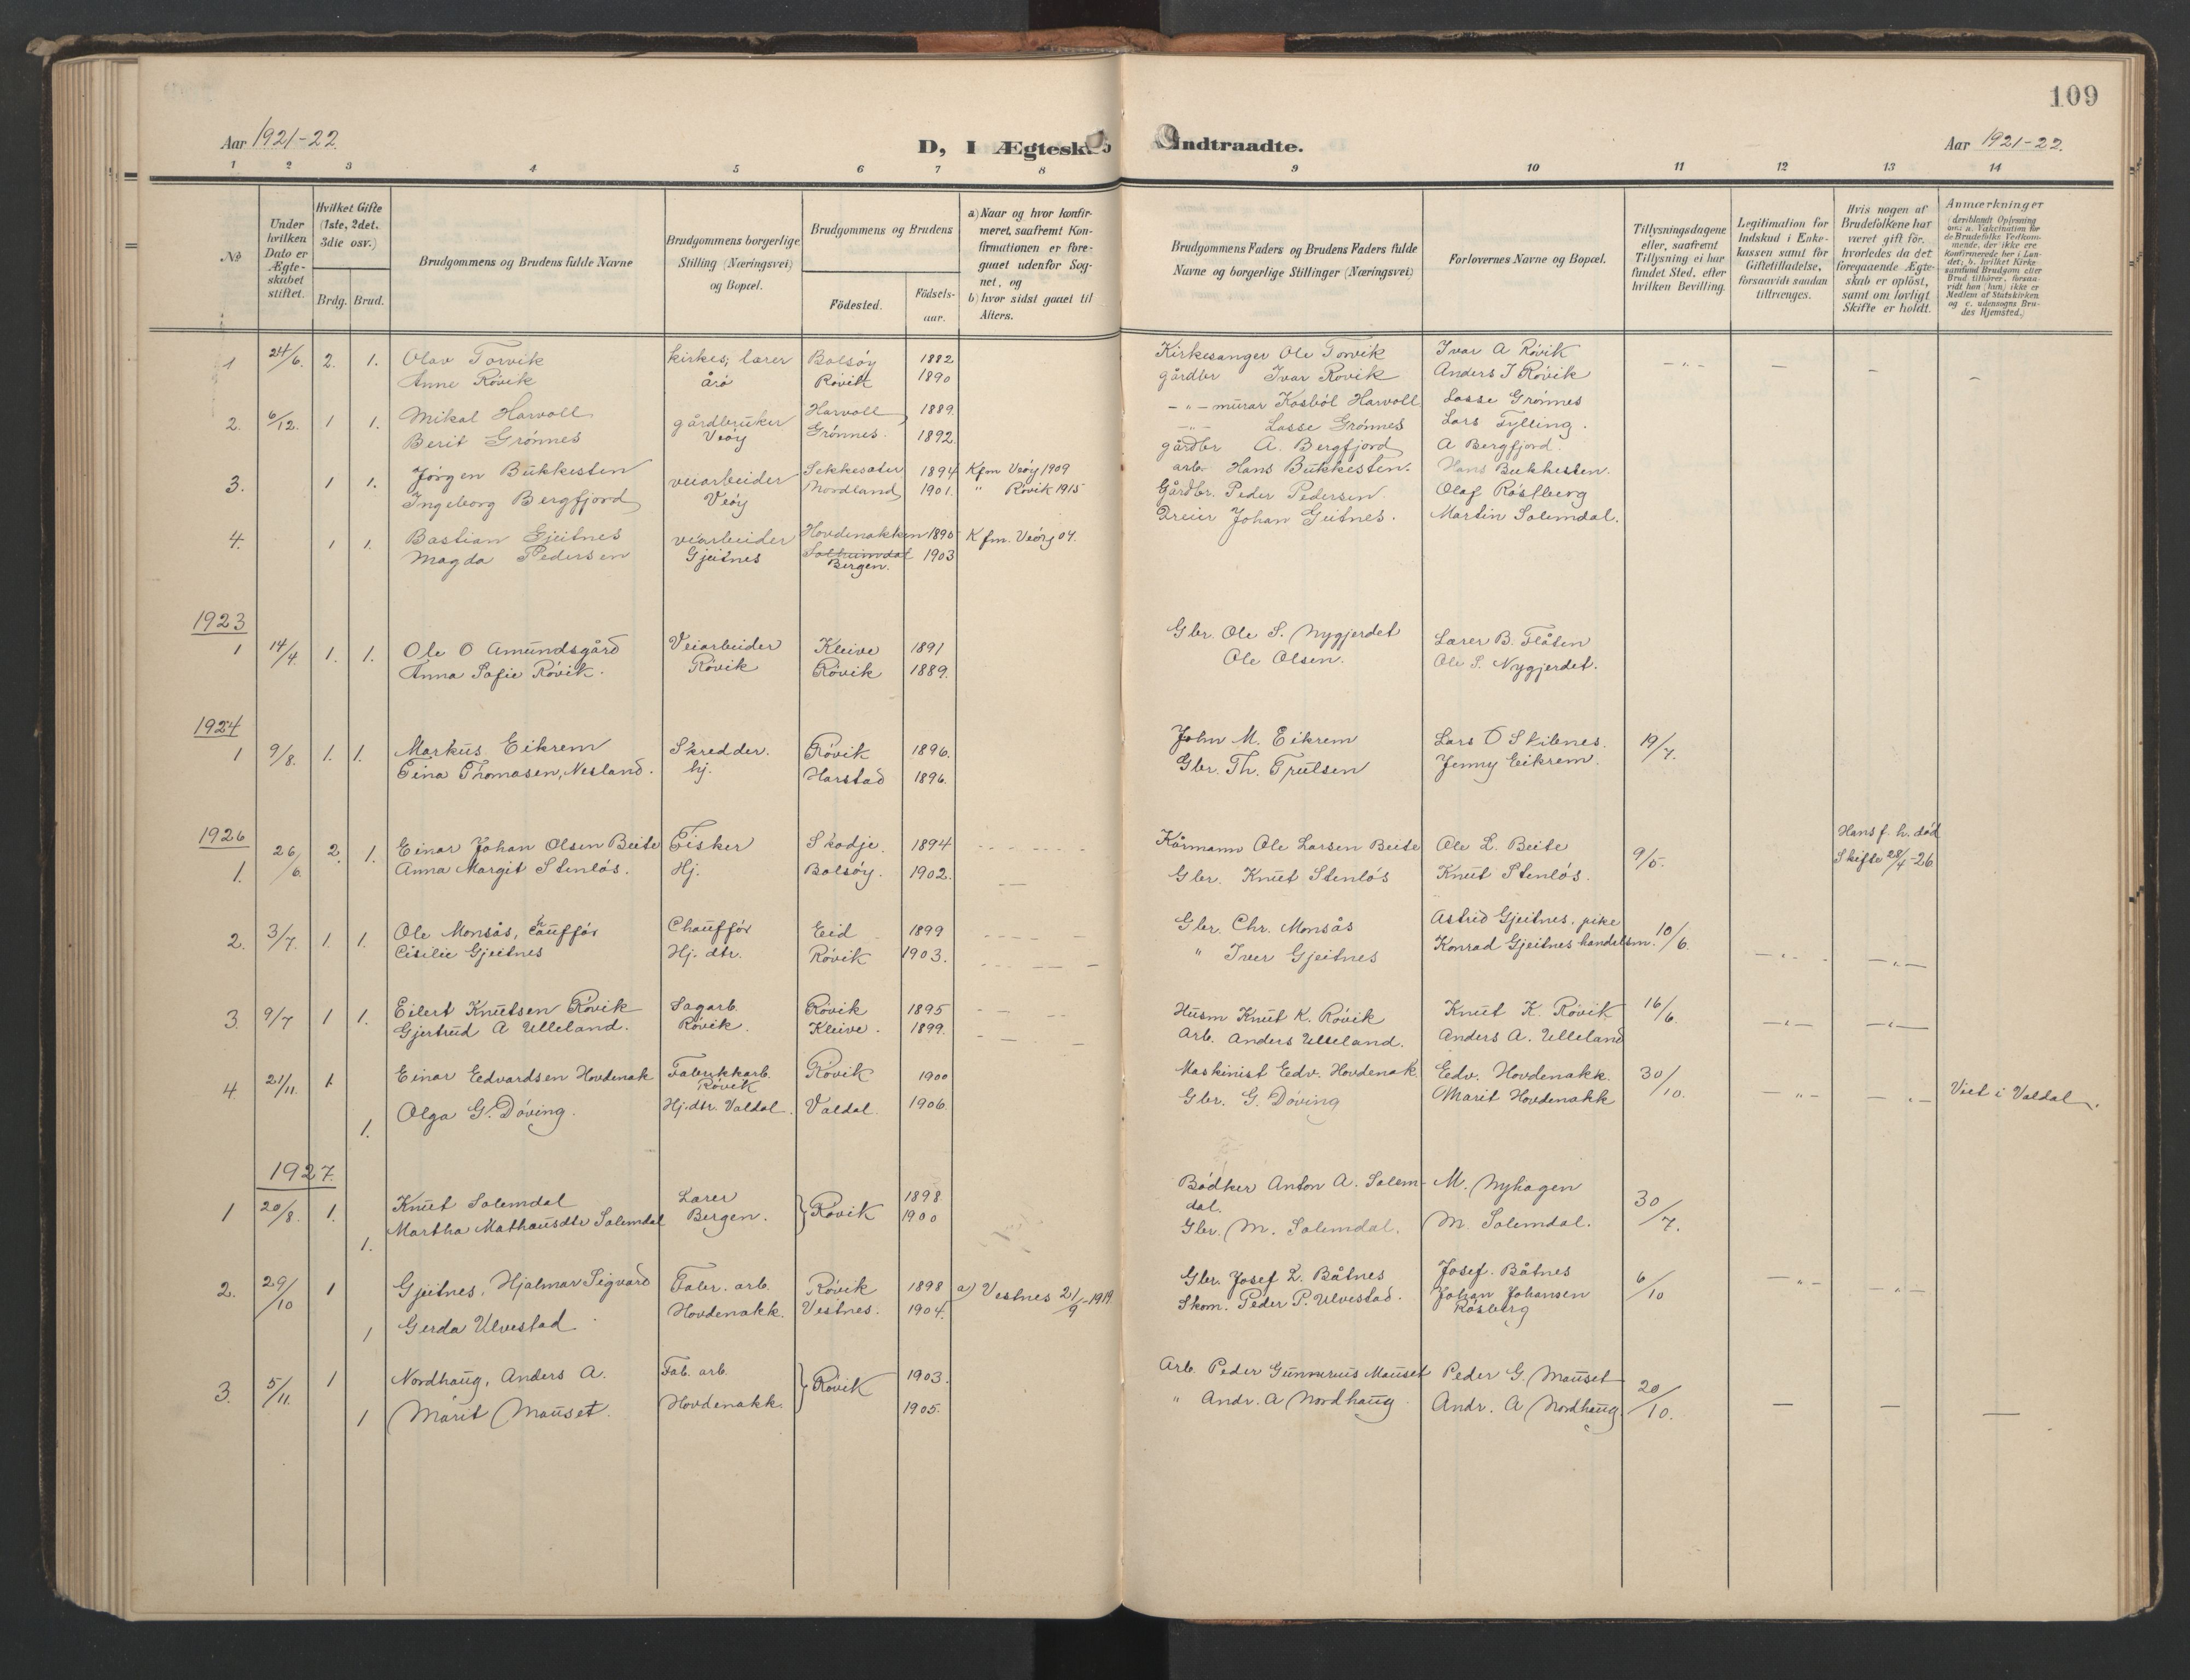 109
Aar 1921-22
D, I Ægtesk
Indtraadte.
Aar 1921-22.
1 2 3 4 5 6 7 8 9 10 11 12 13 14
No
Under hvilken Dato er Ægteskabet stiftet.
Hvilket Gifte (1ste, 2det, 3die osv.)
Brdg. Brud.
Brudgommens og Brudens fulde Navne
Brudgommens borgerlige Stilling (Næringsvei) og Bopæl.
Brudgommens og Brudens
Födested.
Födselsaar.
a) Naar og hvor konfirmeret, saafremt Konfirmationen er foregaaet udenfor Sognet, og
b) hvor sidst gaaet til Alters.
Brudgommens Faders og Brudens Faders fulde Navne og borgerlige Stillinger (Næringsvei)
Forlovernes Navne og Bopæl.
Tillysningsdagene eller, saafremt Tillysning ei har fundet Sted, efter hvilken Bevilling.
Legitimation for Indskud i Enkekassen samt for Giftetilladelse, forsaavidt saadan tiltrænges.
Hvis nogen af Brudefolkene har været gift för, hvorledes da det foregaaende Ægteskab er oplöst, samt om lovligt Skifte er holdt.
Anmærkninger (deriblandt Oplysning om: a. Vakcination for de Brudefolks Vedkommende, der ikke ere Konfirmerede her i Landet; b. hvilket Kirkesamfund Brudgom eller Brud tilhører, forsaavidt han (hun) ikke er Medlem af Statskirken og c. udensogns Brudes Hjemsted.)
1 24/6. 2. 1. Olav Torvik kirkes, lærer Bolsøy 1882 Kirkesanger Ole Torvik Ivar A Røvik - " - - - -
Anne Røvik årø Røvik 1890 gårdbr Ivar Røvik Anders I Røvik
2. 6/12. 1 1. Mikal Harvoll gårdbruker Harvoll 1889. - " - murar Harvoll Lasse Grønnes
Berit Grønnes Veøy Grønnes. 1892. - " - Lasse Grønnes Lars Tylling.
gårdbr A. Bergfjord A Bergfjord.
3. 1 1. Jørgen Bukkesten veiarbeider Sekkesæter 1894 Kfm Veøy 1909 arb. Hans Bukkesten. Hans Bukkesten.
Ingeborg Bergfjord Veøy Nordland 1901. " Røvik 1915 Gårdbr. Peder Pedersen Olaf Røstberg
Dreier Johan Geitnes. Martin Solemdal.
4. 1 1. Bastian Gjeitnes veiarbeider Hovdenakken 1895 Kfm. Veøy 07.
Magda Pedersen Gjeitnes 1903
Bergen.
1923
1 14/4. 1. 1. Ole O Amundsgård Veiarbeider Kleive 1891 Gbr. Ole S. Nygjerdet Lærer B. Flåten
Anna Sofie Røvik. Røvik Røvik 1889. Ole Olsen. Ole S. Nygjerdet.
1924
1 9/8. 1. 1. Markus Eikrem Skredder. Røvik 1896. John M. Eikrem Lars O Skilnes. 19/7.
Tina Thomasen, Nesland. hj. Harstad 1896. Gbr. Th. Trulsen Jenny Eikrem.
1926
1. 26/6. 2. 1. Einar Johan Olsen Beite Fisker Skodje. 1894 Kårmann Ole Larsen Beite Ole L. Beite 9/5. Hans f. h. død
Anna Margit Stenløs. Hj. Bolsøy. 1902. Gbr. Knut Stenløs Knut Stenløs. Skifte 28/4-26
2. 3/7. 1. 1. Ole Monsås, Chauffør Eid 1899 Gbr. Chr. Monsås Astrid Gjeitnes, pike 10/6.
Cisilie Gjeitnes Hj. dtr. Røvik 1903. " Iver Gjeitnes Konrad Gjeitnes handelsm. - " - - " -
3. 9/7 1 1. Eilert Knutsen Røvik Sagarb. Røvik 1895 Husm Knut K. Røvik Knut K. Røvik 16/6.
Gjertrud A Ulleland. Røvik. Kleive. 1899. Arb. Anders Ulleland. Anders A. Ulleland - " - - " -
4. 21/11. 1. Einar Edvardsen Hovdenak Fabrikkarb. Røvik 1900 Maskinist Edv. Hovdenak Edv. Hovdenakk. 30/10.
Røvik
1. Olga G. Døving. Hj.dtr. Valdal. Valdal. 1906. Gbr. G. Døving Marit Hovdenakk - " - - " - Viet i Valdal.
1927.
1 20/8. 1. Knut Solemdal Lærer } Røvik 1898 Bødker Anton A. Solemdal. M. Nyhagen 30/7.
1. Martha Mathausdtr Solemdal Bergen. 1900 Gbr. M. Solemdal. M. Solemdal.
2. 29/10 1 Gjeitnes, Hjalmar Sigvard Fabr. arb. Røvik 1898 a) Vestnes 21/9-1919 Gbr. Josef L. Båtnes Josef. Båtnes 6/10 - " - - " -
1 Gerda Ulvestad Hovdenakk. Vestnes. 1904. Skom. Peder P. Ulvestad. Johan Johansen
Røsberg
3. 5/11. 1 Nordhaug, Anders A. Fab. arb. } Røvik 1903. Arb. Peder Gunnerius Mauset Peder G. Mauset 20/10.
1 Marit Mauset. Hovdenakk. 1905. " Andr. A Nordhaug Andr. A Nordhaug. - - -